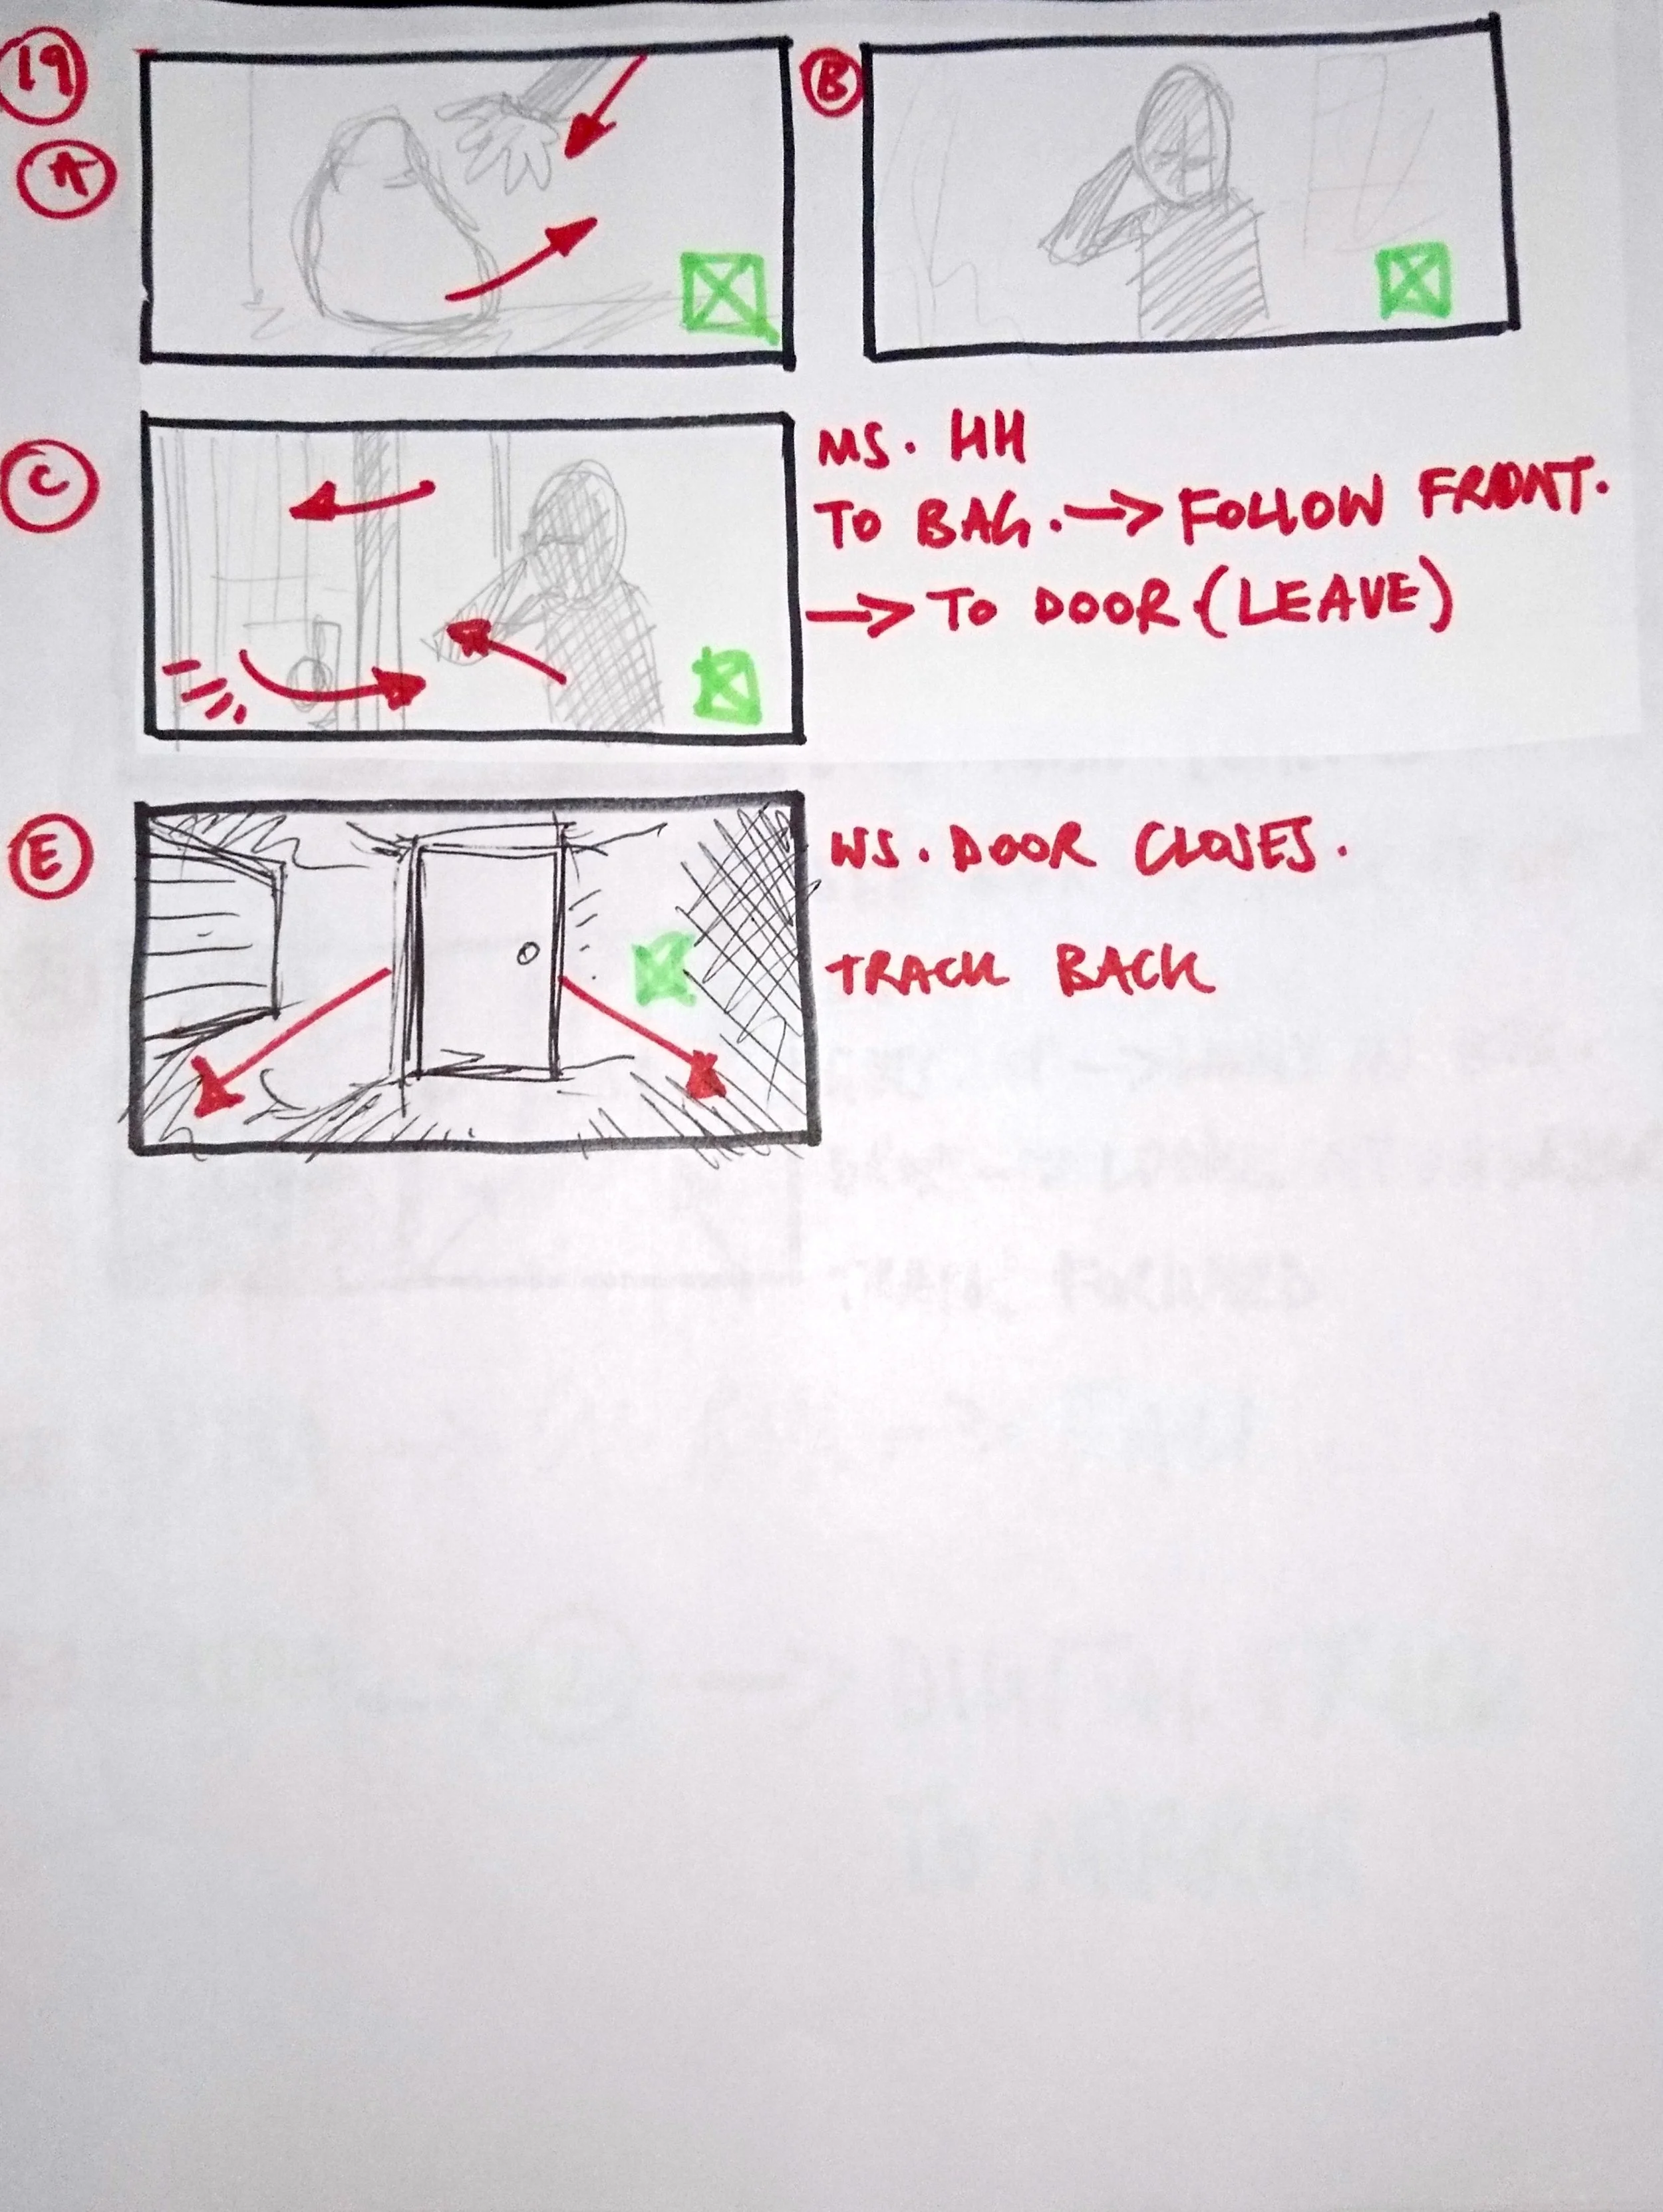 19
A
B
C
MS. HH
TO BAG. → FOLLOW FRONT.
→ TO DOOR (LEAVE)
E
WS. DOOR CLOSES.
TRACK BACK